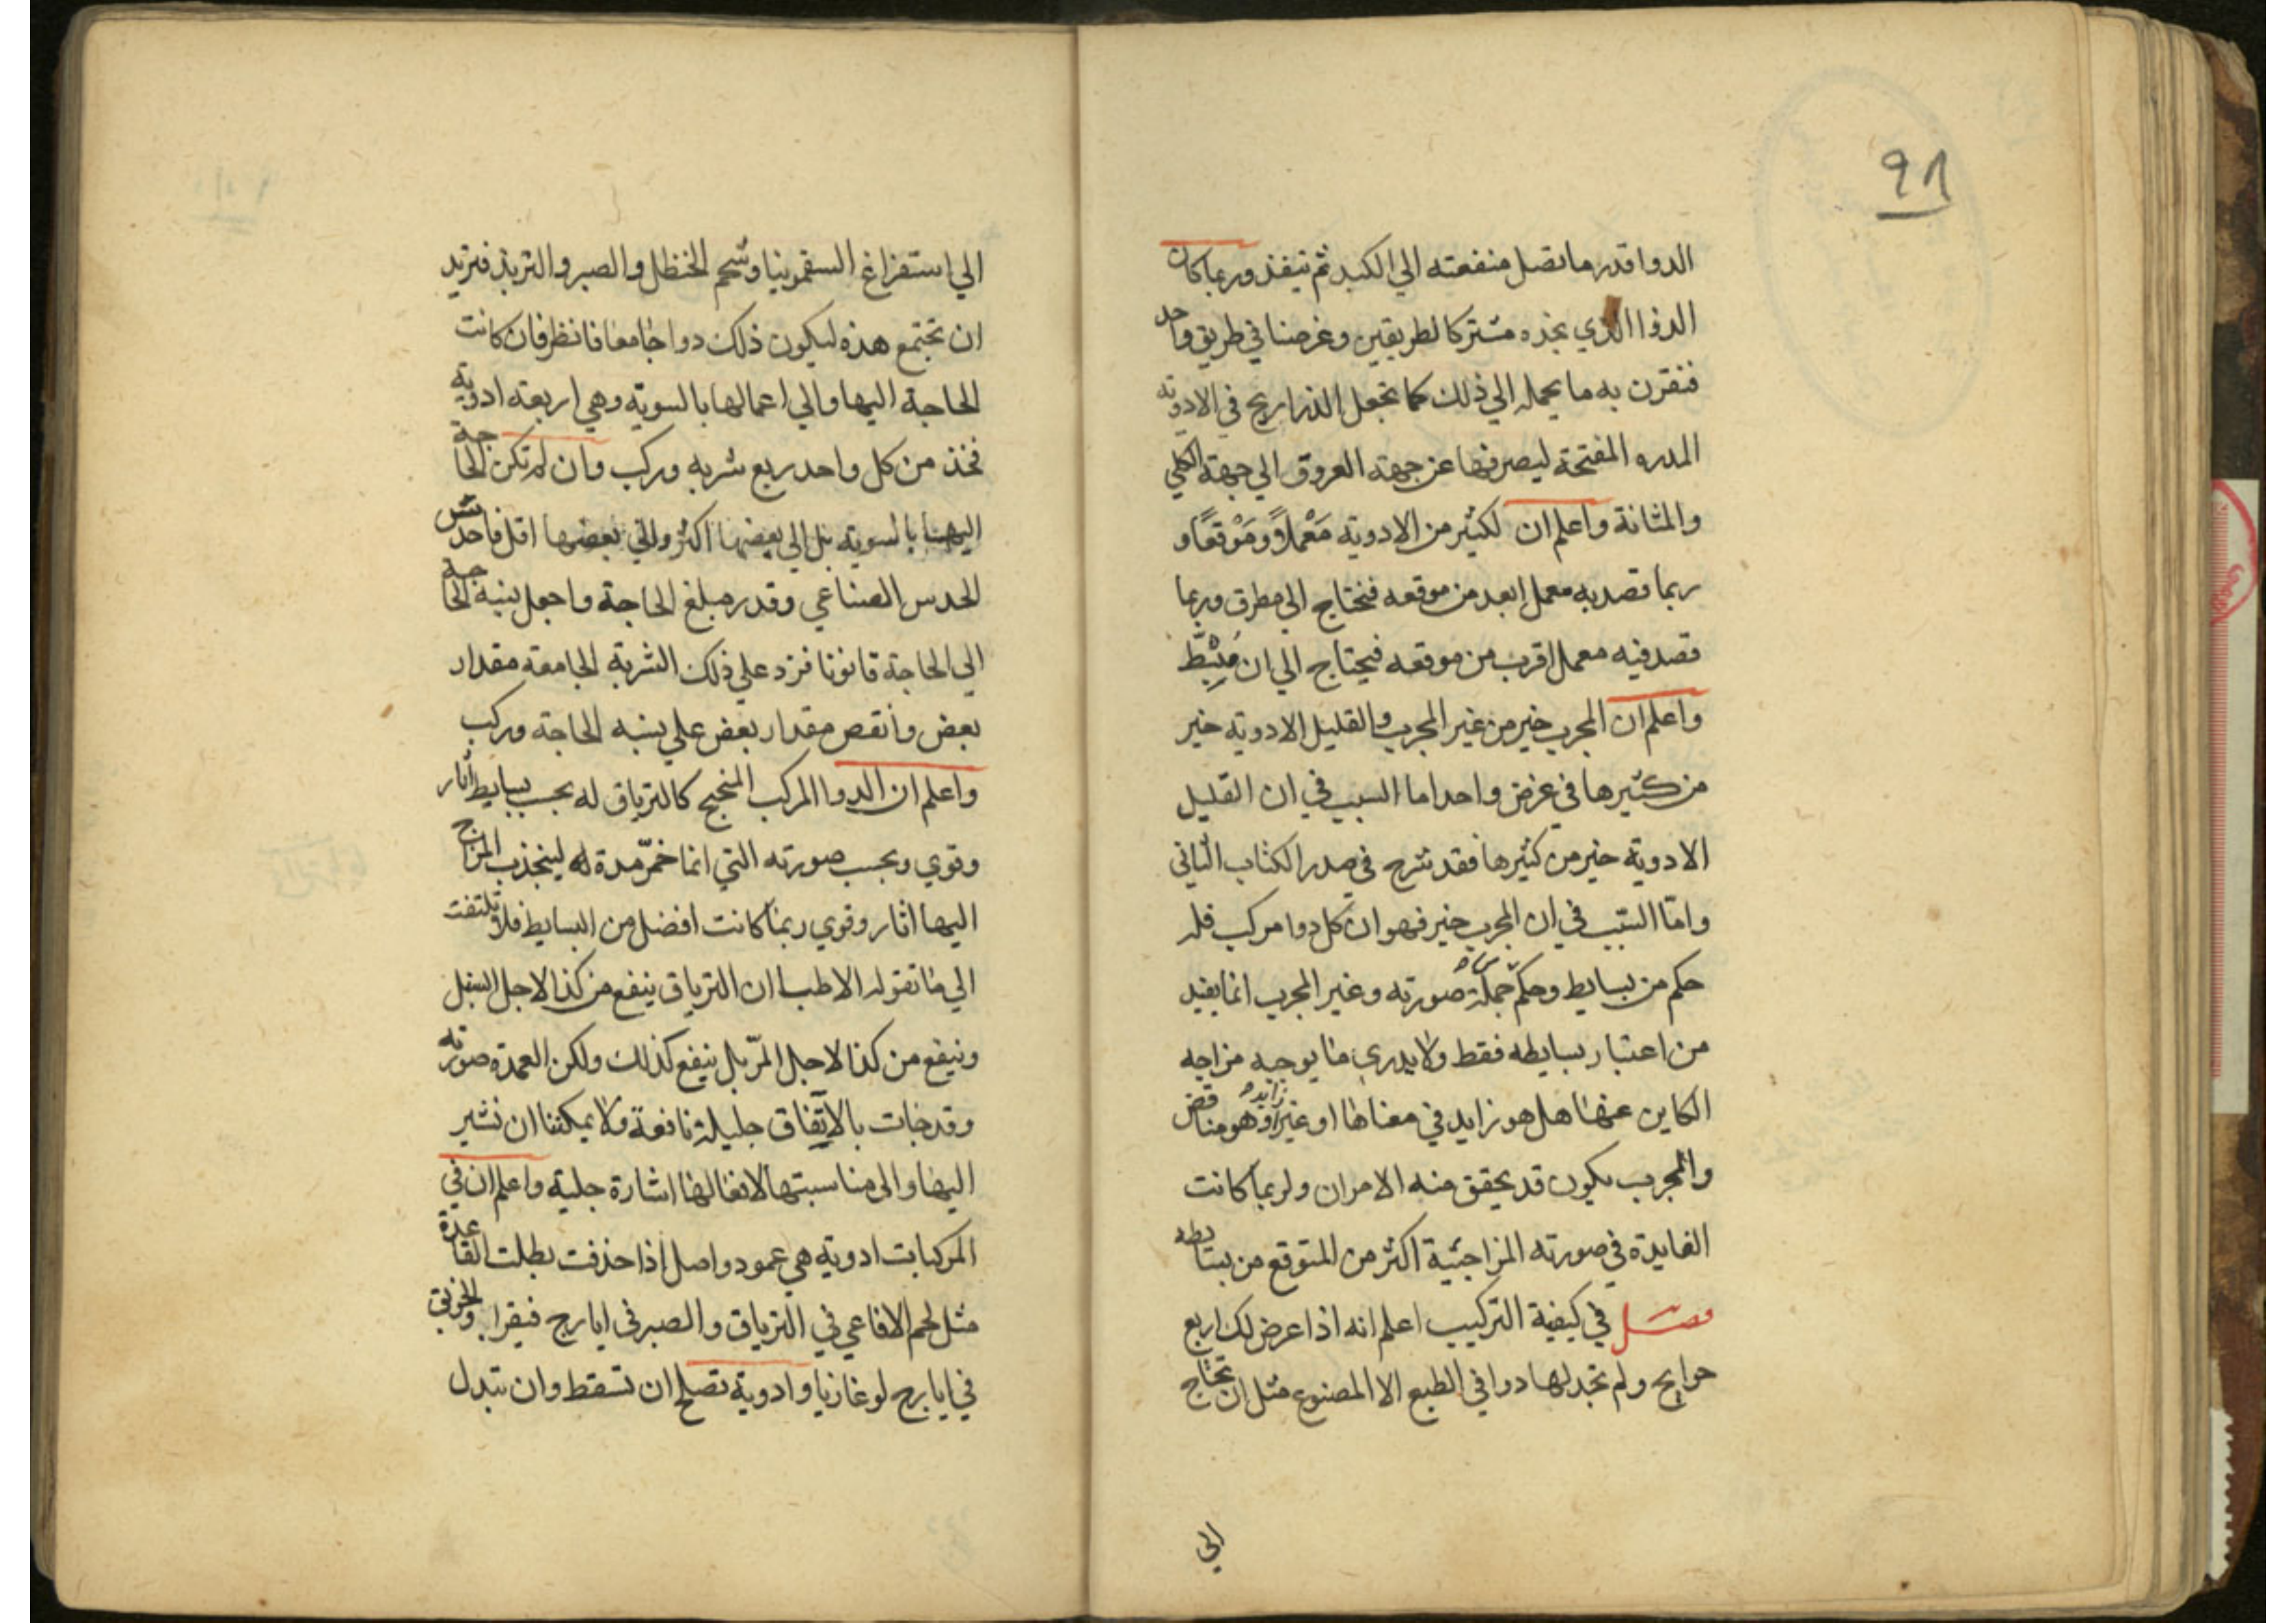 ٩٨
الدوا قدر ما تصل منفعته الي الكبد ثم تنفذ وربما كان
الدوا الذي نجده مشتركا لطريقين وغرضنا في طريق واحد
فنقرن به ما يحمله الي ذلك كما نجعل الذراريح في الادوية
المدره المفتحة ليصرفها عن جهة العروق الي جهة الكلي
والمثانة واعلم ان لكثير من الادوية مَعْملاً ومَوْقعًا و
ربما قصد به معمل ابعد من موقعه فنحتاج الي مطرق وربما
قصد فيه معمل اقرب من موقعه فيحتاج الي ان مُثبِّط
واعلم ان المجرب خير من غير المجرب والقليل الادوية خير
من كثيرها في غرض واحد اما السبب في ان القليل
الادوية خير من كثيرها فقد شرح في صدر الكتاب الثاني
وامّا السّبب في ان المجرب خير فهو ان كل دوا مركب فله
حكم من بسايط وحكم جملة صورته وغير المجرب انما يفيد
من اعتبار بسايطه فقط ولا يدري ما يوجبه مزاجه
الكاين عنها هل هو زايد في معناها او غير زايد او هو مناقض
والمجرب يكون قد تحقق منه الامران ولربما كانت
الفايدة في صورته المزاجية اكثر من المتوقع من بسايطه
فصل في كيفية التركيب اعلم انه اذا عرض لك اربع
حوايج ولم تجد لها دوا في الطبع الا المصنوع مثل ان تحتاج
الي
الي استفراغ السقمونيا وشحم الحنظل والصبر والتربد فتريد
ان تجتمع هذه ليكون ذلك دوا جامعا فانظر فان كانت
الحاجة اليها والي اعمالها بالسوية وهي اربعة ادوية
فخذ من كل واحد ربع شربه وركب وان لم تكن الحاجة
اليها بالسوية بل الي بعضها اكثر والي بعضها اقل فاحدس
الحدس الصناعي وقدر مبلغ الحاجة واجعل نسبة الحاجة
الي الحاجة قانونا فزد علي ذلك الشربة الجامعة مقدار
بعض وانقص مقدار بعض علي نسبه الحاجة وركب
واعلم ان الدوا المركب المنجح كالترياق له بحسب بسايط اثار
وقوي وبحسب صورته التي انما خمّر مدة له لينجذب المزاج
اليها اثار وقوي ربما كانت افضل من البسايط فلا تلتفت
الي ما تقوله الاطبا ان الترياق ينفع من كذا لاجل السنبل
وينفع من كذا لاجل المرّ بل ينفع كذلك ولكن العمدة صورته
وقد جات بالاتفاق جليلة نافعة ولا يمكننا ان نشير
اليها والى مناسبتها لافعالها اشارة جلية واعلم ان في
المركبات ادوية هي عمود واصل اذا حذفت بطلت القاعدة
مثل لحم الافاعي في الترياق والصبر في ايارج فيقرا والخربق
في ايارج لوغاذيا وادوية تصلح ان تسقط وان تبدل